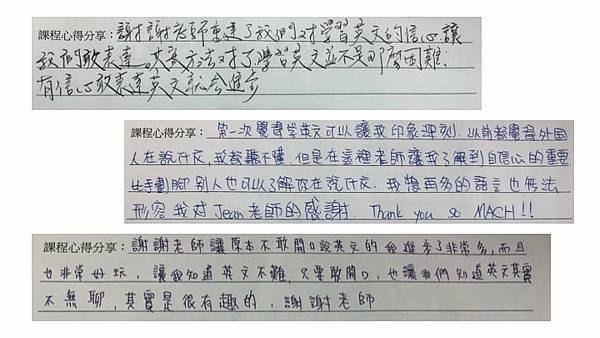 課程心得分享：謝謝老師重建了我們对學習英文的信心讓
我們敢表達。其實方法对了學習英文並不是那麼困難.
有信心敢表達英文就会進步
課程心得分享： 第一次覺得學英文可以讓我印象深刻. 以前都覺得外国
人在說什広, 我都聽不懂 但是在這裡老師讓我了解到自信心的重要
比手劃腳 別人也可以了解你在說什広. 我想再多的語言也無法
形容我对Jean老師的感謝. Thank you so MACH!!
課程心得分享：謝謝老師讓原本不敢開口說英文的我進步了非常多,而且
也非常好玩，讓我知道英文不難,只要敢開口，也讓我們知道英文其實
不無聊，其實是很有趣的，謝謝老師